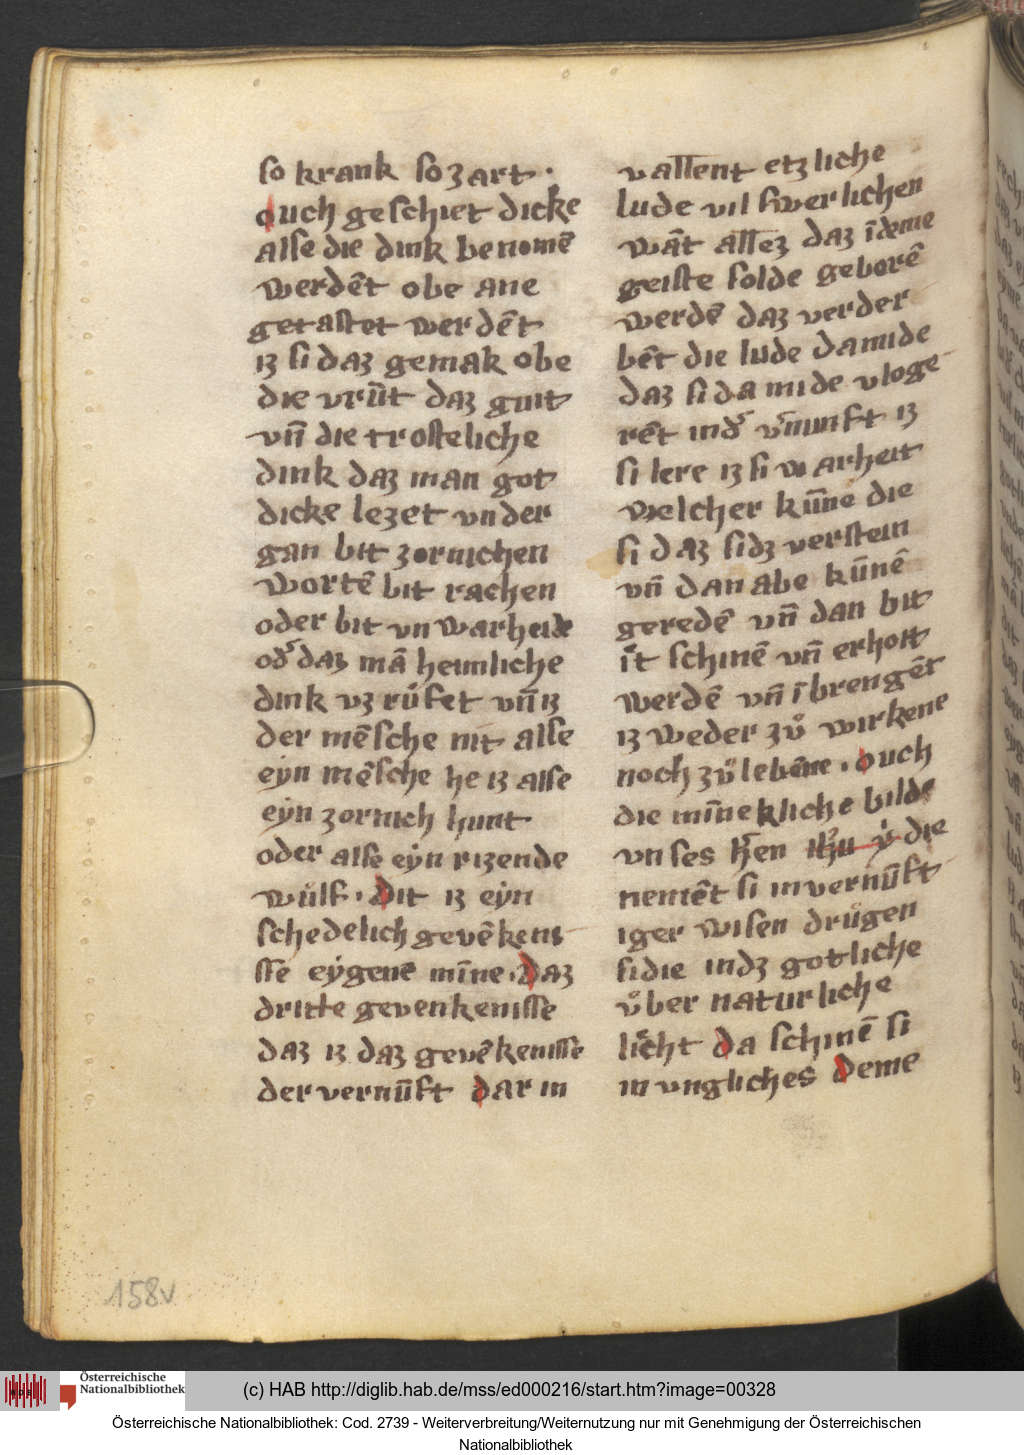 so krank so zart ·
ouch geschiet dicke
alse die dink benomē
werdēt obe ane
getastet werdēt
iz si daz gemak obe
die vrūt daz guit
vn̄ die trosteliche
dink daz man got
dicke lezet vnder
gan bit zornichen
wortē bit rachen
oder bit vn warheide
od᷑ daz mā heimliche
dink vz růfet vn̄ iz
der mēsche nit alse
eyn mēsche he iz alse
eyn zornich hunt
oder alse eyn rizende
wůlf · Dit iz eyn
schedelich gevēkenis
sse eygene mīne · Daz
dritte gevenkenisse
daz iz daz gevēkenisse
der vernūft dar in
vallent etzliche
lude vil swerlichen
wāt allez daz ī deme
geiste solde geborē
werdē daz verder
bēt die lude da mide
daz si da mide vloge
rēt in d᷑ v᷑nunft iz
si lere iz si warheit
welcher kūne die
si daz sidz verstein
vn̄ dan abe kūnē
geredē vn̄ dan bit
it schinē vn̄ erhoit
werdē vn̄ ī brengēt
iz weder zů wirkene
noch zů lebēne · ouch
die mīnekliche bilde
vnses h᷑en die
nemēt si in vernūft
iger wisen drůgen
si die in dz gotliche
vͦber naturliche
licht da schinē si
in vngliches deme
158v
Österreichische
Nationalbibliothek
(c) HAB http://diglib.hab.de/mss/ed000216/start.htm?image=00328
Österreichische Nationalbibliothek: Cod. 2739 - Weiterverbreitung/Weiternutzung nur mit Genehmigung der Österreichischen
Nationalbibliothek